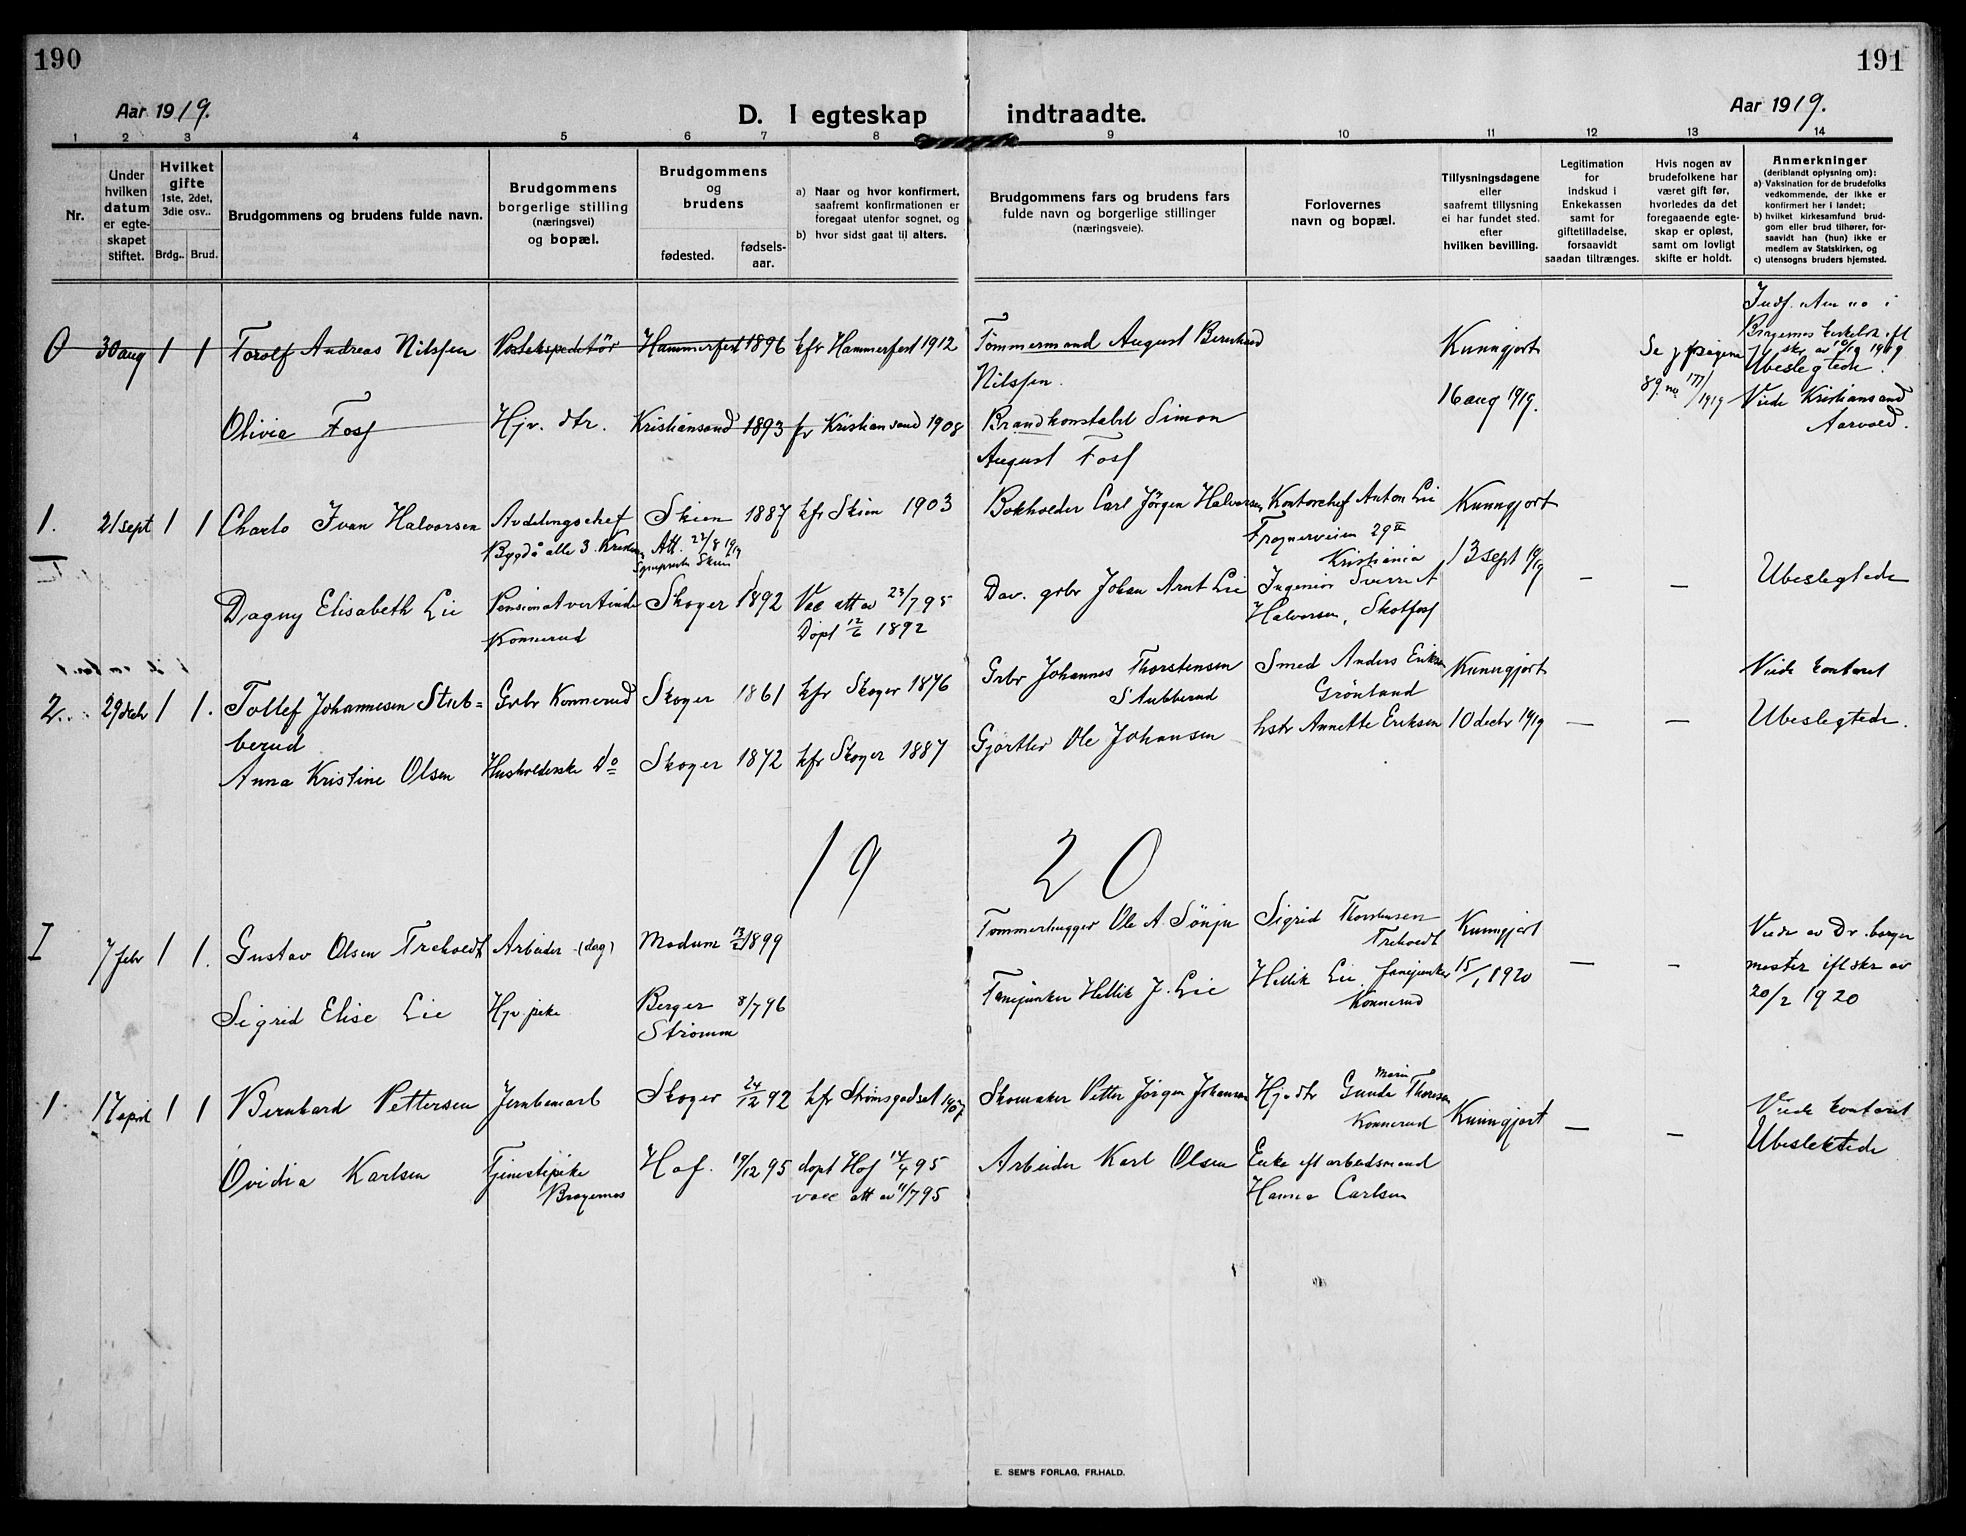 190
191
Aar 1919.
D. I egteskap indtraadte.
Aar 1919.
1 2 3 4 5 6 7 8 9 10 11 12 13 14
Nr.
Under
hvilken
datum
er egte-
skapet
stiftet.
Hvilket
gifte
1ste, 2det,
3die osv..
Brdg.. Brud.
Brudgommens og brudens fulde navn.
Brudgommens
borgerlige stilling
(næringsvei)
og bopæl.
Brudgommens
og
brudens
fødested.
fødsels-
aar.
a) Naar og hvor konfirmert,
saafremt konfirmationen er
foregaat utenfor sognet, og
b) hvor sidst gaat til alters.
Brudgommens fars og brudens fars
fulde navn og borgerlige stillinger
(næringsveie).
Forlovernes
navn og bopæl.
Tillysningsdagene
eller
saafremt tillysning
ei har fundet sted.
efter
hvilken bevilling.
Legitimation
for
indskud i
Enkekassen
samt for
giftetilladelse,
forsaavidt
saadan tiltrænges.
Hvis nogen av
brudefolkene har
været gift før,
hvorledes da det
foregaaende egte-
skap er opløst,
samt om lovligt
skifte er holdt.
Anmerkninger
(deriblandt oplysning om):
a) Vaksination for de brudefolks
vedkommende, der ikke er
konfirmert her i landet;
b) hvilket kirkesamfund brud-
gom eller brud tilhører, for-
saavidt han (hun) ikke er
medlem av Statskirken, og
c) utensogns bruders hjemsted.
0 30 aug 1 1 Torolf Andreas Nilssen Postekspeditør Hammerfest 1896 kfr Hammerfest 1912 Tømmermand August Bernhard
Nilssen.
Kunngjort
16 aug 1919.
Se pagina
89. no 177/1919
Indf.
Bragernes
skr av 10/12 1919
Ubeslegtede.
Viede Kristiansand
Aarvold.
Olivia Foss Hjv. dtr. Kristiansand 1893 kfr Kristiansand 1908 Brandkonstabel Simon
August Foss
1. 21 sept 1 1 Charlo Ivan Halvorsen Avdelingschef Skien 1887 kfr Skien 1903 Bokholder Carl Jörgen Halvorsen Kontorchef Anton Lie Kunngjort
Bygdö alle 3. Att. 22/8 1919
Skien
Frognerveien 29 II
Kristiania
13 sept 1919
I
Dagny Elisabeth Lie Pensionatvertinde Skoger 1892 Vac att av 23/7 95 Dav. grbr Johan Arnt Lie Ingeniør Sverre A — — Ubeslegtede
Konnerud Døpt 12/6 1892 Halvorsen, Skotfoss
2. 29 decbr 1 1. Tollef Johannesen Stub= Grbr Konnerud Skoger 1861 kfr Skoger 1876 Grbr Johannes Thorstensen Smed Anders Eriksen Kunngjort Viede kontoret
berud Stubberud Grönland
Anna Kristine Olsen Husholderske Do Skoger 1872 kfr Skoger 1887 Gjørtler Ole Johansen hstr Annette Eriksen 10 decbr 1919 — — Ubeslegtede.
19 20
I 7 febr 1 1. Gustav Olsen Trehoedt Arbeider (dag) Modum 1899 Tømmerhugger Ole A. Sönju Sigrid Thorstensen Kunngjort Viede av Dr. borger
Trehoedt
mester ifl skr av
20/2 1920
Sigrid Elise Lie Hjv. pike Berger 8/7 96 Fanejunker Hellik J. Lie Hellik Lie fanejunker 15/1 1920 — —
Strømm Konnerud
1. 17 april 1 1 Bernhard Pettersen Jernbanearb Skoger 24/12 92 kfr Strømsgodset 1907 Skomaker Petter Jörgen Johansen Hjv dtr Gunda Marie Thoresen Kunngjort — — Viede kontoret
Konnerud
Ubeslektede
Ovidia Karlsen Tjenestepike Hof. 19/12 95 døpt Hof 14/4 95 Arbeider Karl Olsen Enke eft arbeidsmand
Bragernes vacc att av 11/7 95 Hanna Carlsen
E. SEM'S FORLAG, FR.HALD.